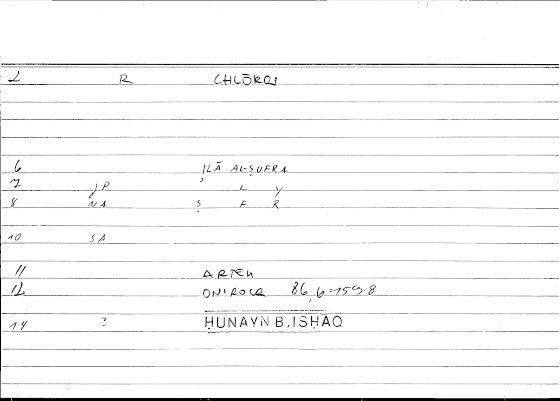 2 R CHLŌROI
6 ILĀ AL-ṢUFRA
7 JP L Y
8 NA Ṣ F R
10 SA
11 ARTEM
12 ONIROCR 86,6-159.8
14 ? ḤUNAYN B. ISḤĀQ